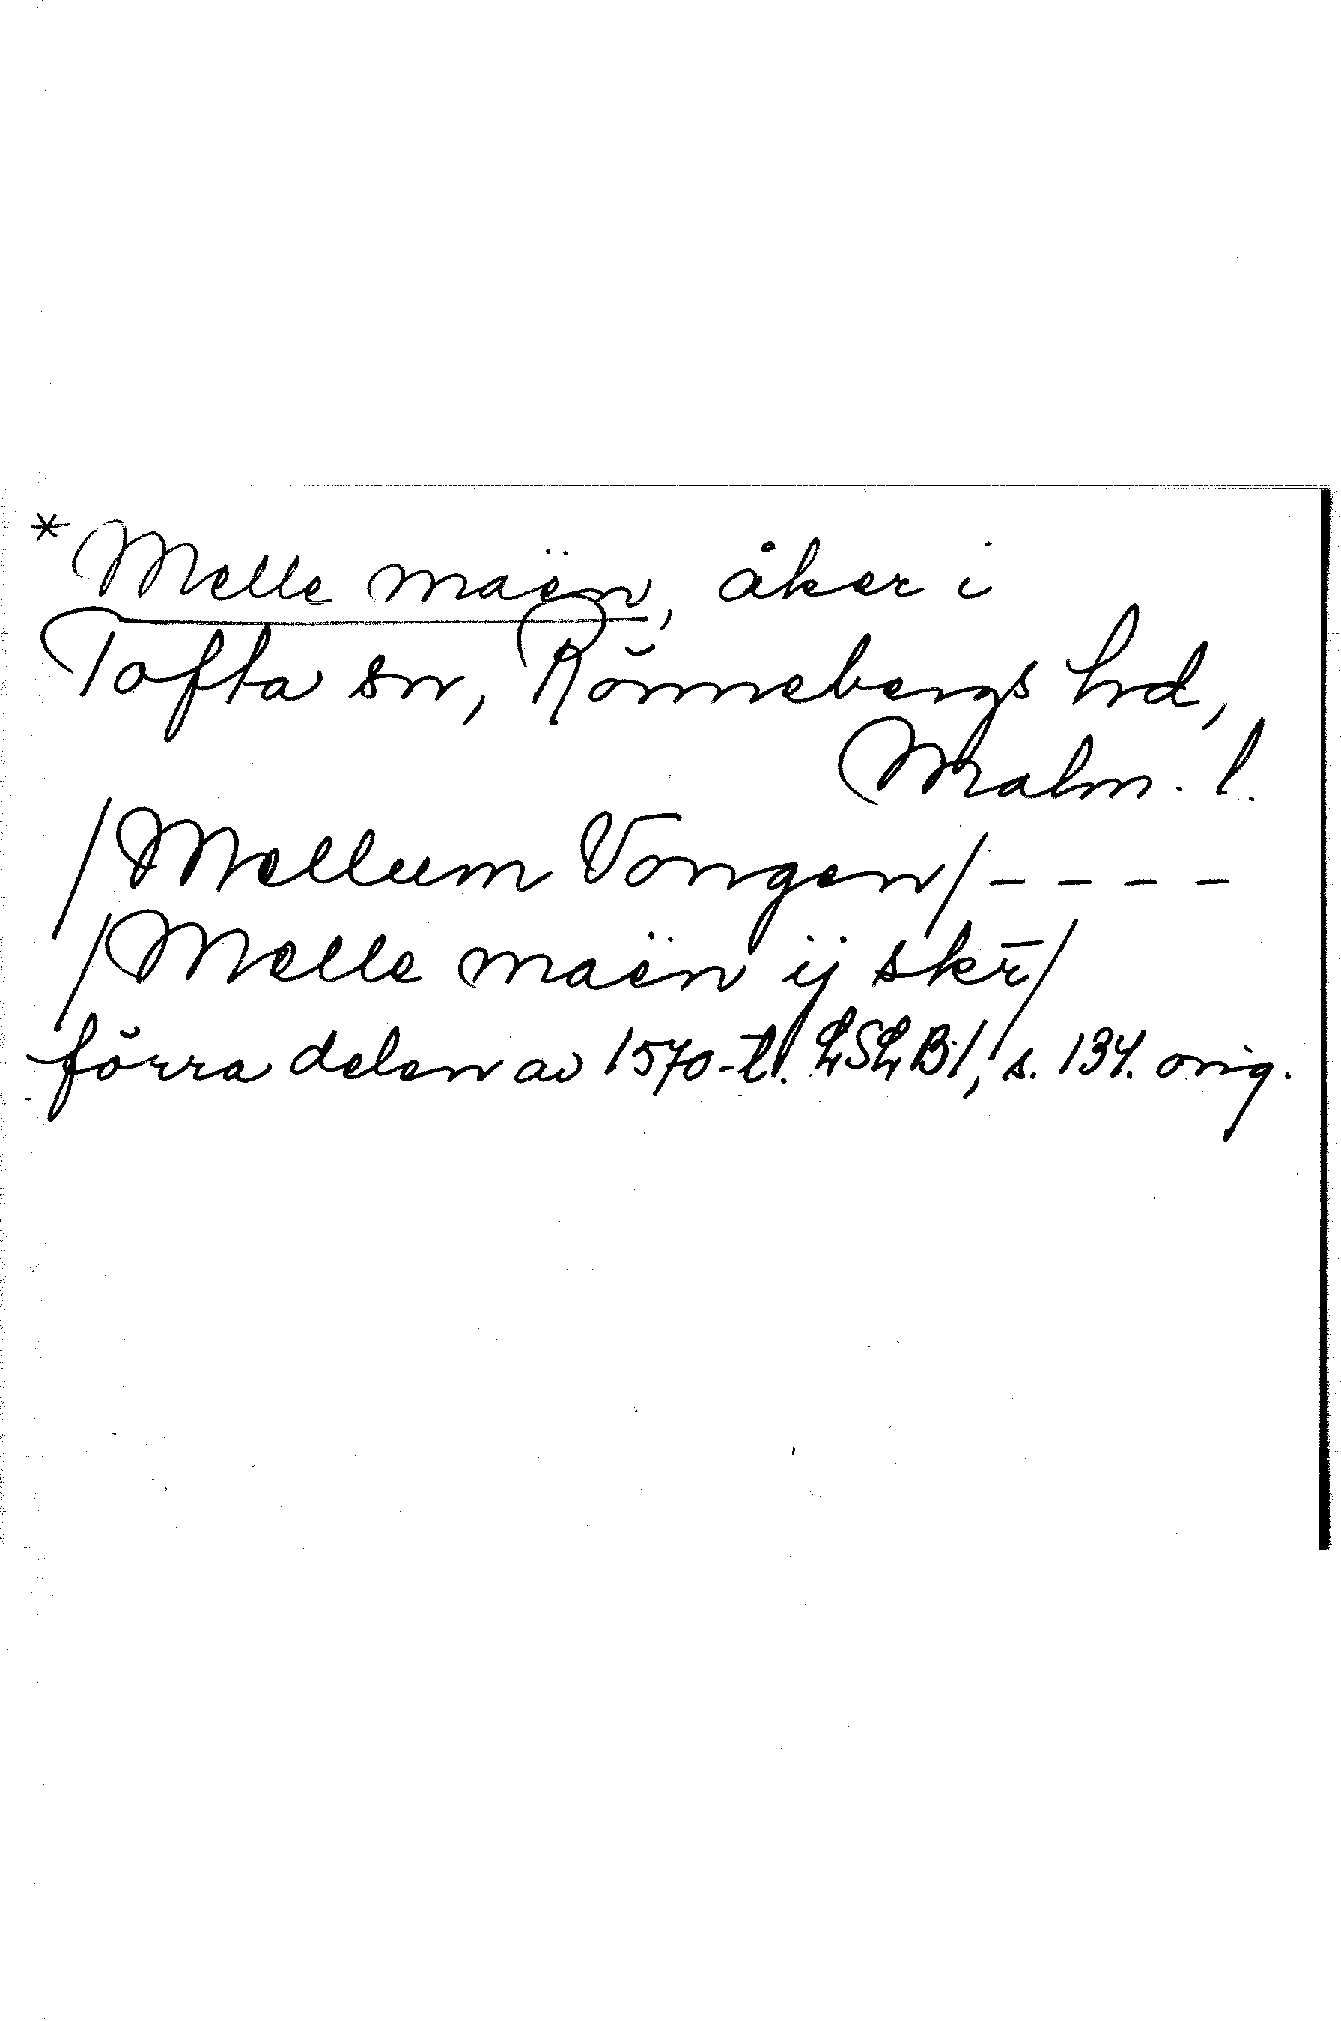 *Melle maën, åker i
Tofta sn, Rönnebergs hd,
Malm. l.
/Mellum Vongen/ - - - -
/Melle maën ij skr̄/
förra delen av 1570-t. LSLB1, s. 134. orig.